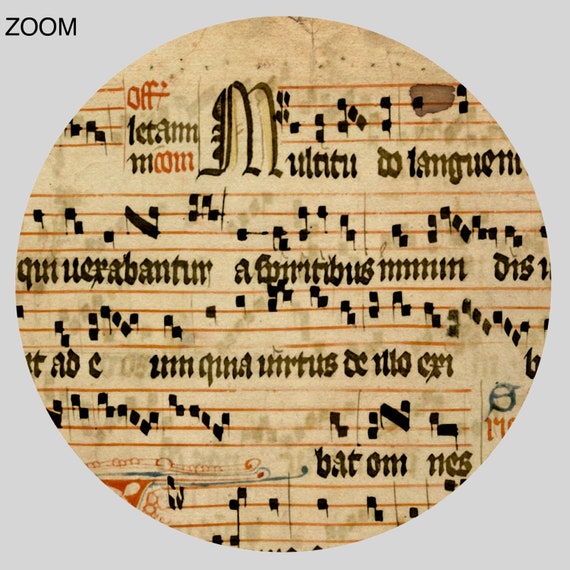 ZOOM
off
letamī Multitu do languenı
īn com
qui uexabantur a spiritibus inmun dis u
nt ad e um quia uirtus de illo exi b
bat om nes